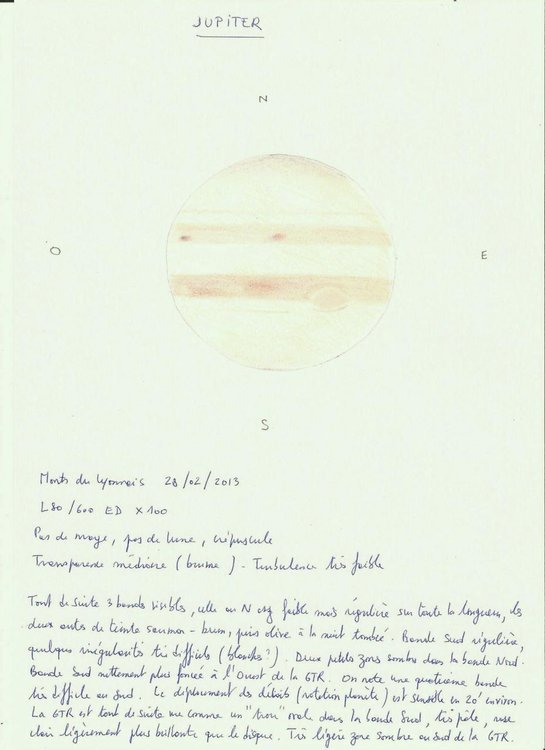 JUPITER
N
O
E
S
Monts du Lyonnais 28/02/2013
L80/600 ED X100
Pas de nuage, pas de lune, crépuscule
Transparence médiocre (brume) - Turbulence très faible
Tout de suite 3 bandes visibles, celle au N est faible mais régulière sur toute la longueur, les
deux autres de teinte saumon - brun, puis olive à la nuit tombée. Bande Sud régulière,
quelques irrégularités très difficiles (blanches?). Deux petites zones sombres dans la bande Nord.
Bande Sud nettement plus foncée à l'Ouest de la GTR. On note une quatrième bande
très difficile au Sud. Le déplacement des détails (rotation planète) est sensible en 20' environ.
La GTR est tout de suite vue comme un "trou" ovale dans la bande Sud, très pâle, rose
clair légèrement plus brillante que le disque. Très légère zone sombre au Sud de la GTR.